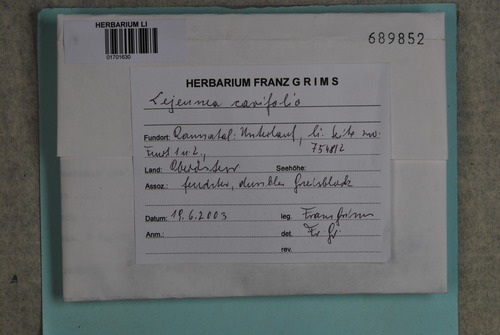 HERBARIUM LI
01701630
689852
HERBARIUM FRANZ GRIMS
Lejeunea cavifolia
Fundort: Rannatal: Unterlauf, li. Seite zw.
7548/2
Land: Oberösterr Seehöhe:
Assoz.: feuchter, dunkler Gneisblock
Datum: 19.6.2003 leg. Franz Grims
Anm.: det. Fr Gri
rev.